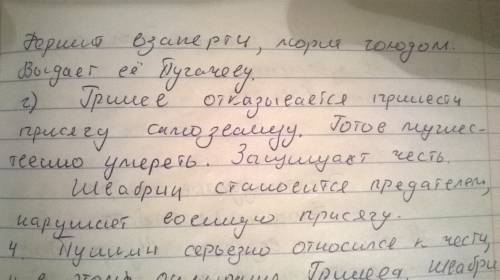 держит взаперти, моря голодом.
Выдает её Пугачеву.
г) Гринев отказывается принести
присягу самозванцу. Готов мужес-
твенно умереть. Защищает честь.
Швабрин становится предателем,
нарушает военную присягу.
4. Пушкин серьезно относился к чести,
Гринева. Швабри